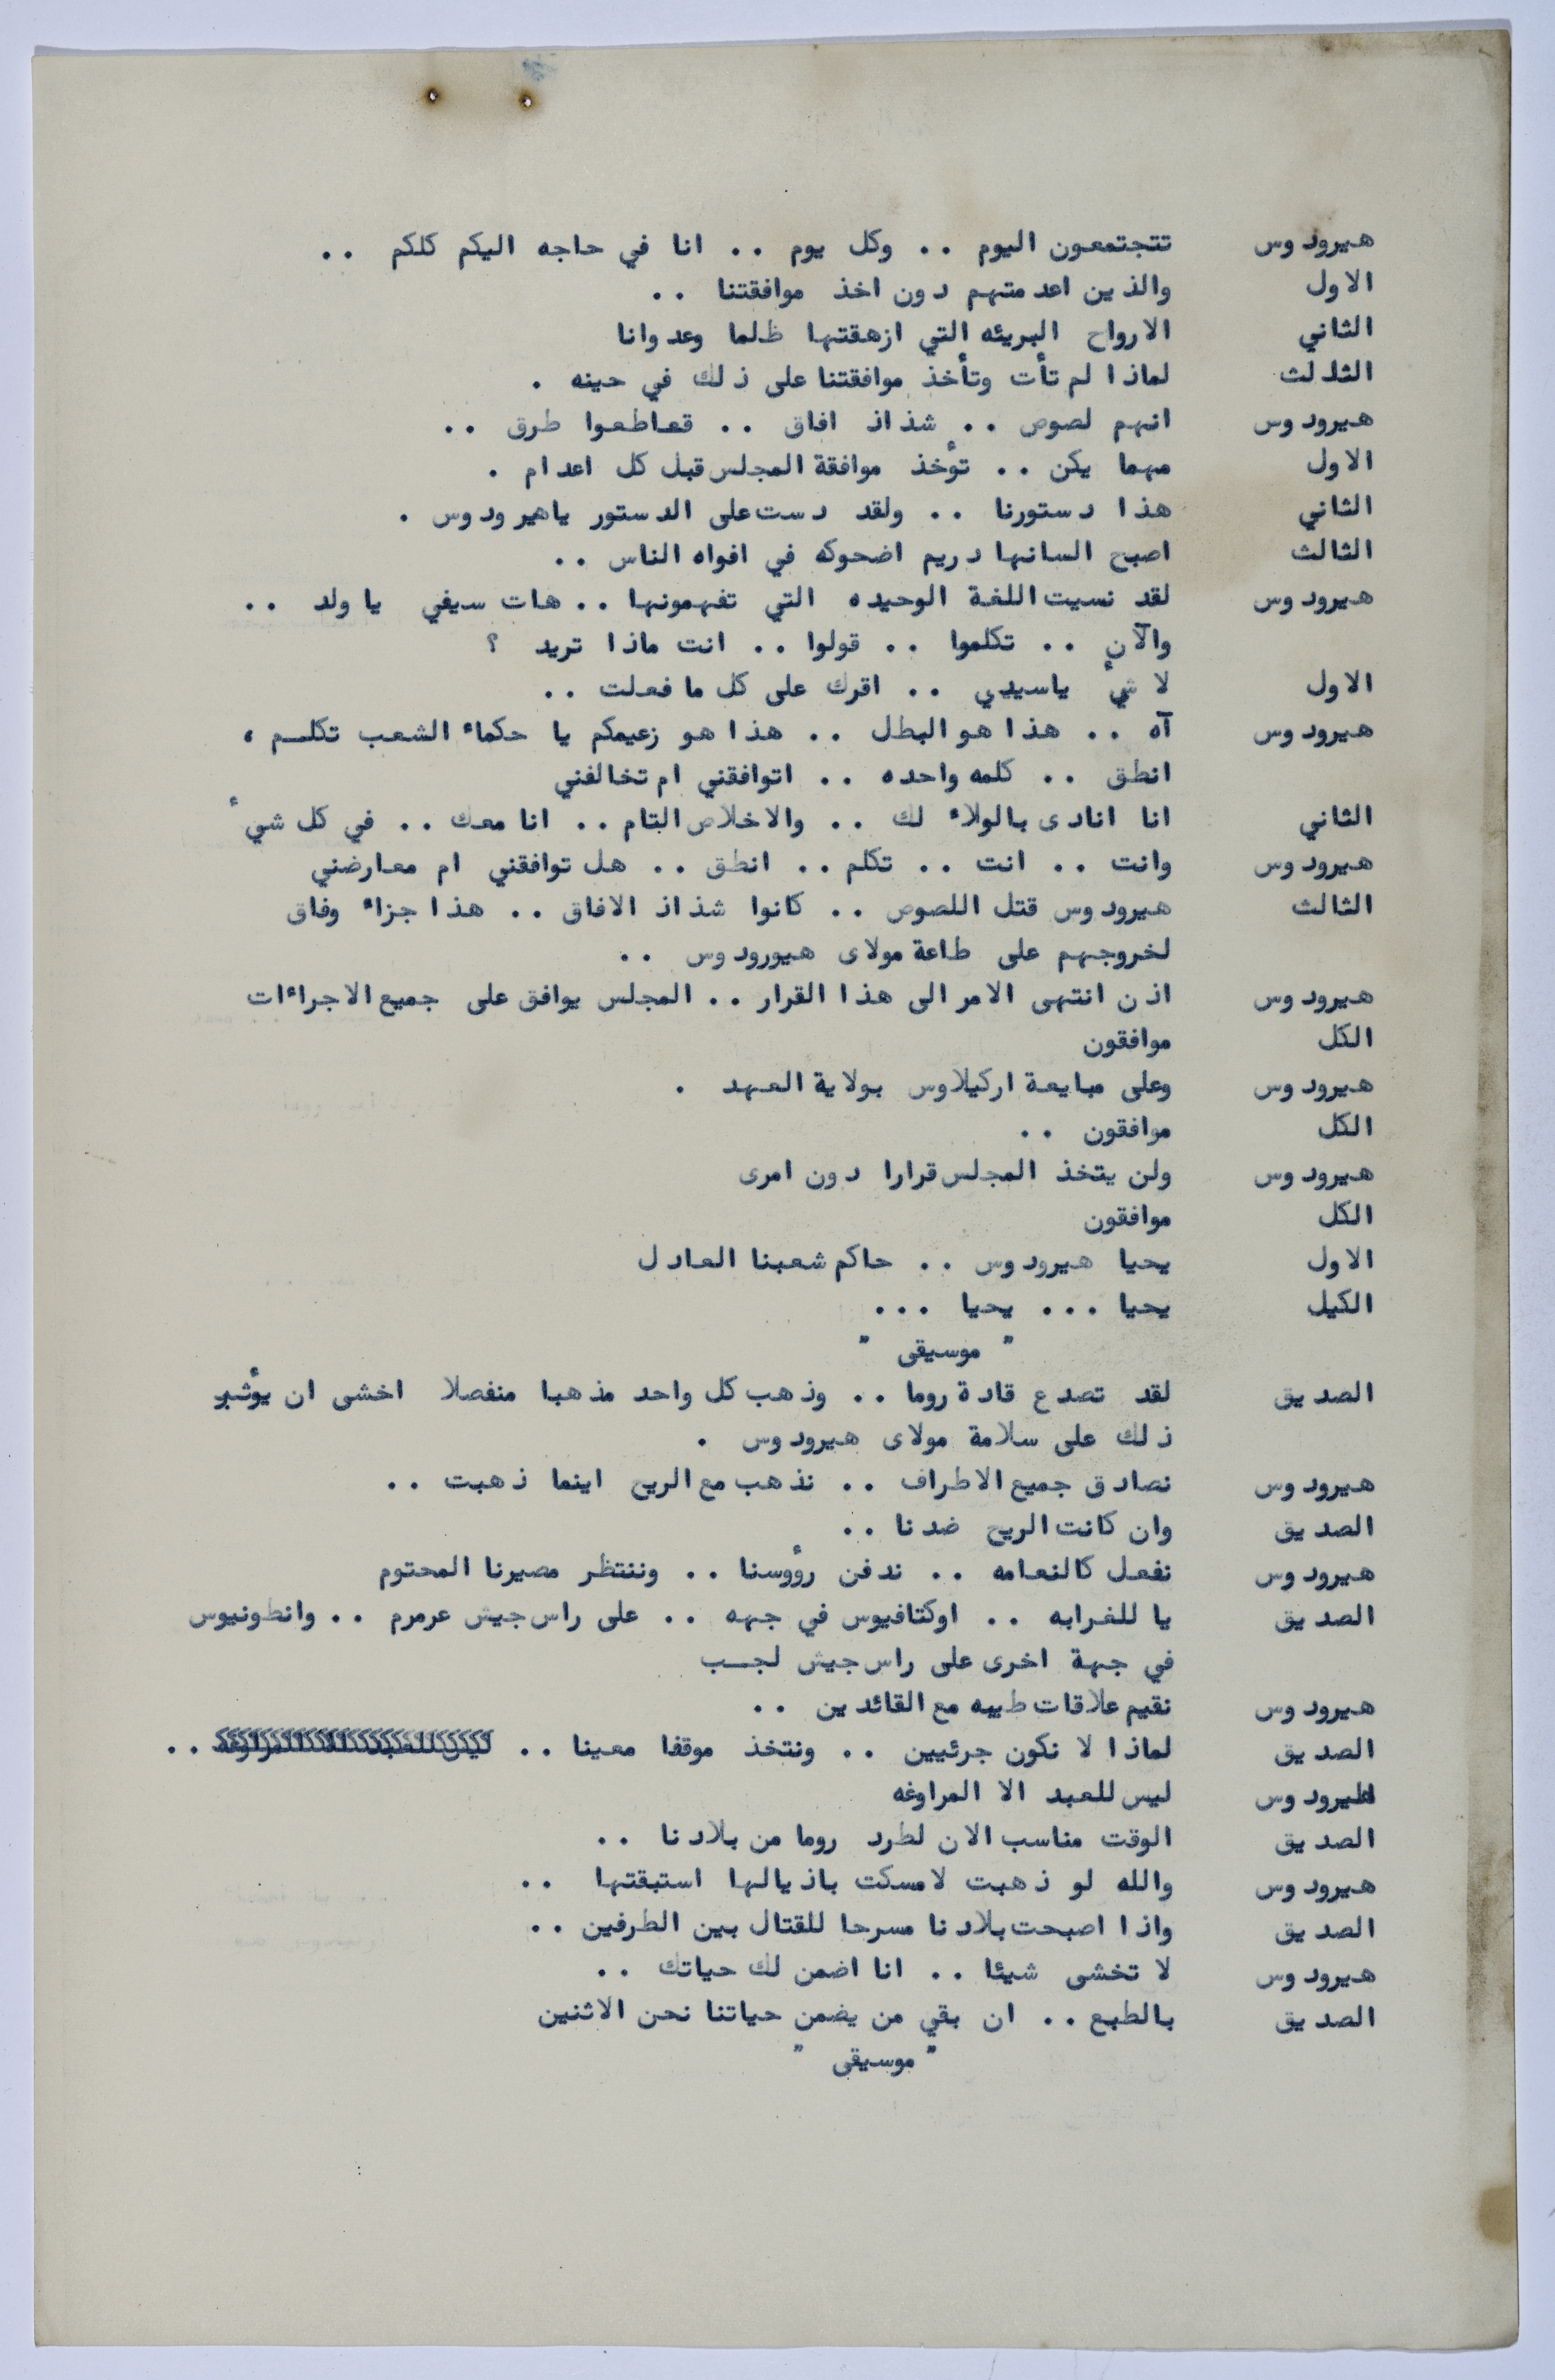 هيرودوس تتجتمعون اليوم .. وكل يوم .. انا في حاجه اليكم كلكم ..
الاول والذين اعدمتهم دون اخذ موافقتنا ..
الثاني الارواح البريئه التي ازهقتها ظلما وعدوانا
الثلالث لماذا لم تأت وتأخذ موافقتنا على ذلك في حينه .
هيرودوس انهم لصوص .. شذاذ افاق .. قعاطعوا طرق ..
الاول مهما يكن .. تؤخذ موافقة المجلس قبل كل اعدام .
الثاني هذا دستورنا .. ولقد دست على الدستور ياهيرودوس .
الثالث اصبح السانهادريم اضحوكه في افواه الناس ..
هيرودوس لقد نسيت اللغة الوحيده التي تفهمونها .. هات سيفي يا ولد ..
والآن .. تكلموا .. قولوا .. انت ماذا تريد ؟
الاول لا شيء ياسيدي .. اقرك على كل ما فعلت ..
هيرودوس آه .. هذا هو البطل .. هذا هو زعيمكم يا حكماء الشعب تكلم ،
انطق .. كلمه واحده .. اتوافقني ام تخالفني
الثاني انا انادى بالولاء لك .. والاخلاص التام .. انا معك .. في كل شيء
هيرودوس وانت .. انت .. تكلم .. انطق .. هل توافقني ام معارضني
الثالث هيرودوس قتل اللصوص .. كانوا شذاذ الافاق .. هذا جزاء وفاق
لخروجهم على طاعة مولاى هيورودوس ..
هيرودوس اذن انتهى الامر الى هذا القرار .. المجلس يوافق على جميع الاجراءات
الكل موافقون
هيرودوس وعلى مبايعة اركيلاوس بولاية العهد .
الكل موافقون ..
هيرودوس ولن يتخذ المجلس قرارا دون امرى
الكل موافقون
الاول يحيا هيرودوس .. حاكم شعبنا العادل
الكيل يحيا ... يحيا ...
" موسيقى "
الصديق لقد تصدع قادة روما .. وذهب كل واحد مذهبا منفصلا اخشى ان يؤثر
ذلك على سلامة مولاى هيرودوس .
هيرودوس نصادق جميع الاطراف .. نذهب مع الريح اينما ذهبت ..
الصديق وان كانت الريح ضدنا ..
هيرودوس نفعل كالنعامه .. ندفن رؤوسنا .. وننتظر مصيرنا المحتوم
الصديق يا للغرابه .. اوكتافيوس في جهه .. على راس جيش عرمرم .. وانطونيوس
في جهة اخرى على راس جيش لجب
هيرودوس نقيم علاقات طيبه مع القائدين ..
الصديق لماذا لا نكون جرئيين .. ونتخذ موقفا معينا .. ..
هيرودوس ليس للعبد الا المراوغه
الصديق الوقت مناسب الان لطرد روما من بلادنا ..
هيرودوس والله لو ذهبت لامسكت باذيالها استبقتها ..
الصديق واذا اصبحت بلادنا مسرحا للقتال بين الطرفين ..
هيرودوس لا تخشى شيئا .. انا اضمن لك حياتك ..
الصديق بالطبع .. ان بقي من يضمن حياتنا نحن الاثنين
" موسيقى "